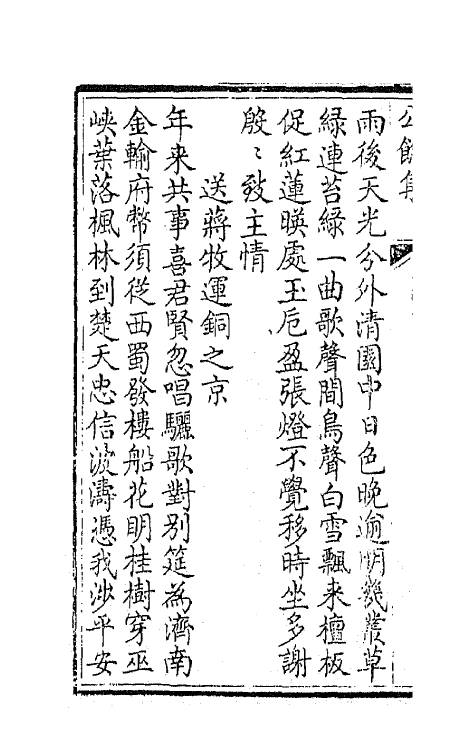 雨後天光分外清園中日色晚逾明幾叢草
綠連苔綠一曲歌聲間鳥聲白雪飄来檀板
促紅蓮暎處玉卮盈張燈不覺移時坐多謝
殷〻致主情
送蔣牧運銅之京
年来共事喜君賢忽唱驪歌對别筵為濟南
金輸府幣須從西蜀發樓船花明桂樹穿巫
峡葉落楓林到楚天忠信波濤憑我涉平安